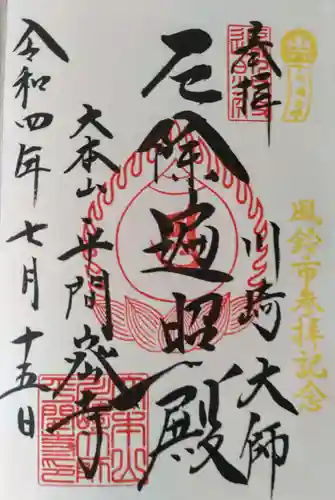 奉拝
川崎大師
厄除遍照殿
大本山平間寺
令和四年七月十五日
風鈴市参拝記念